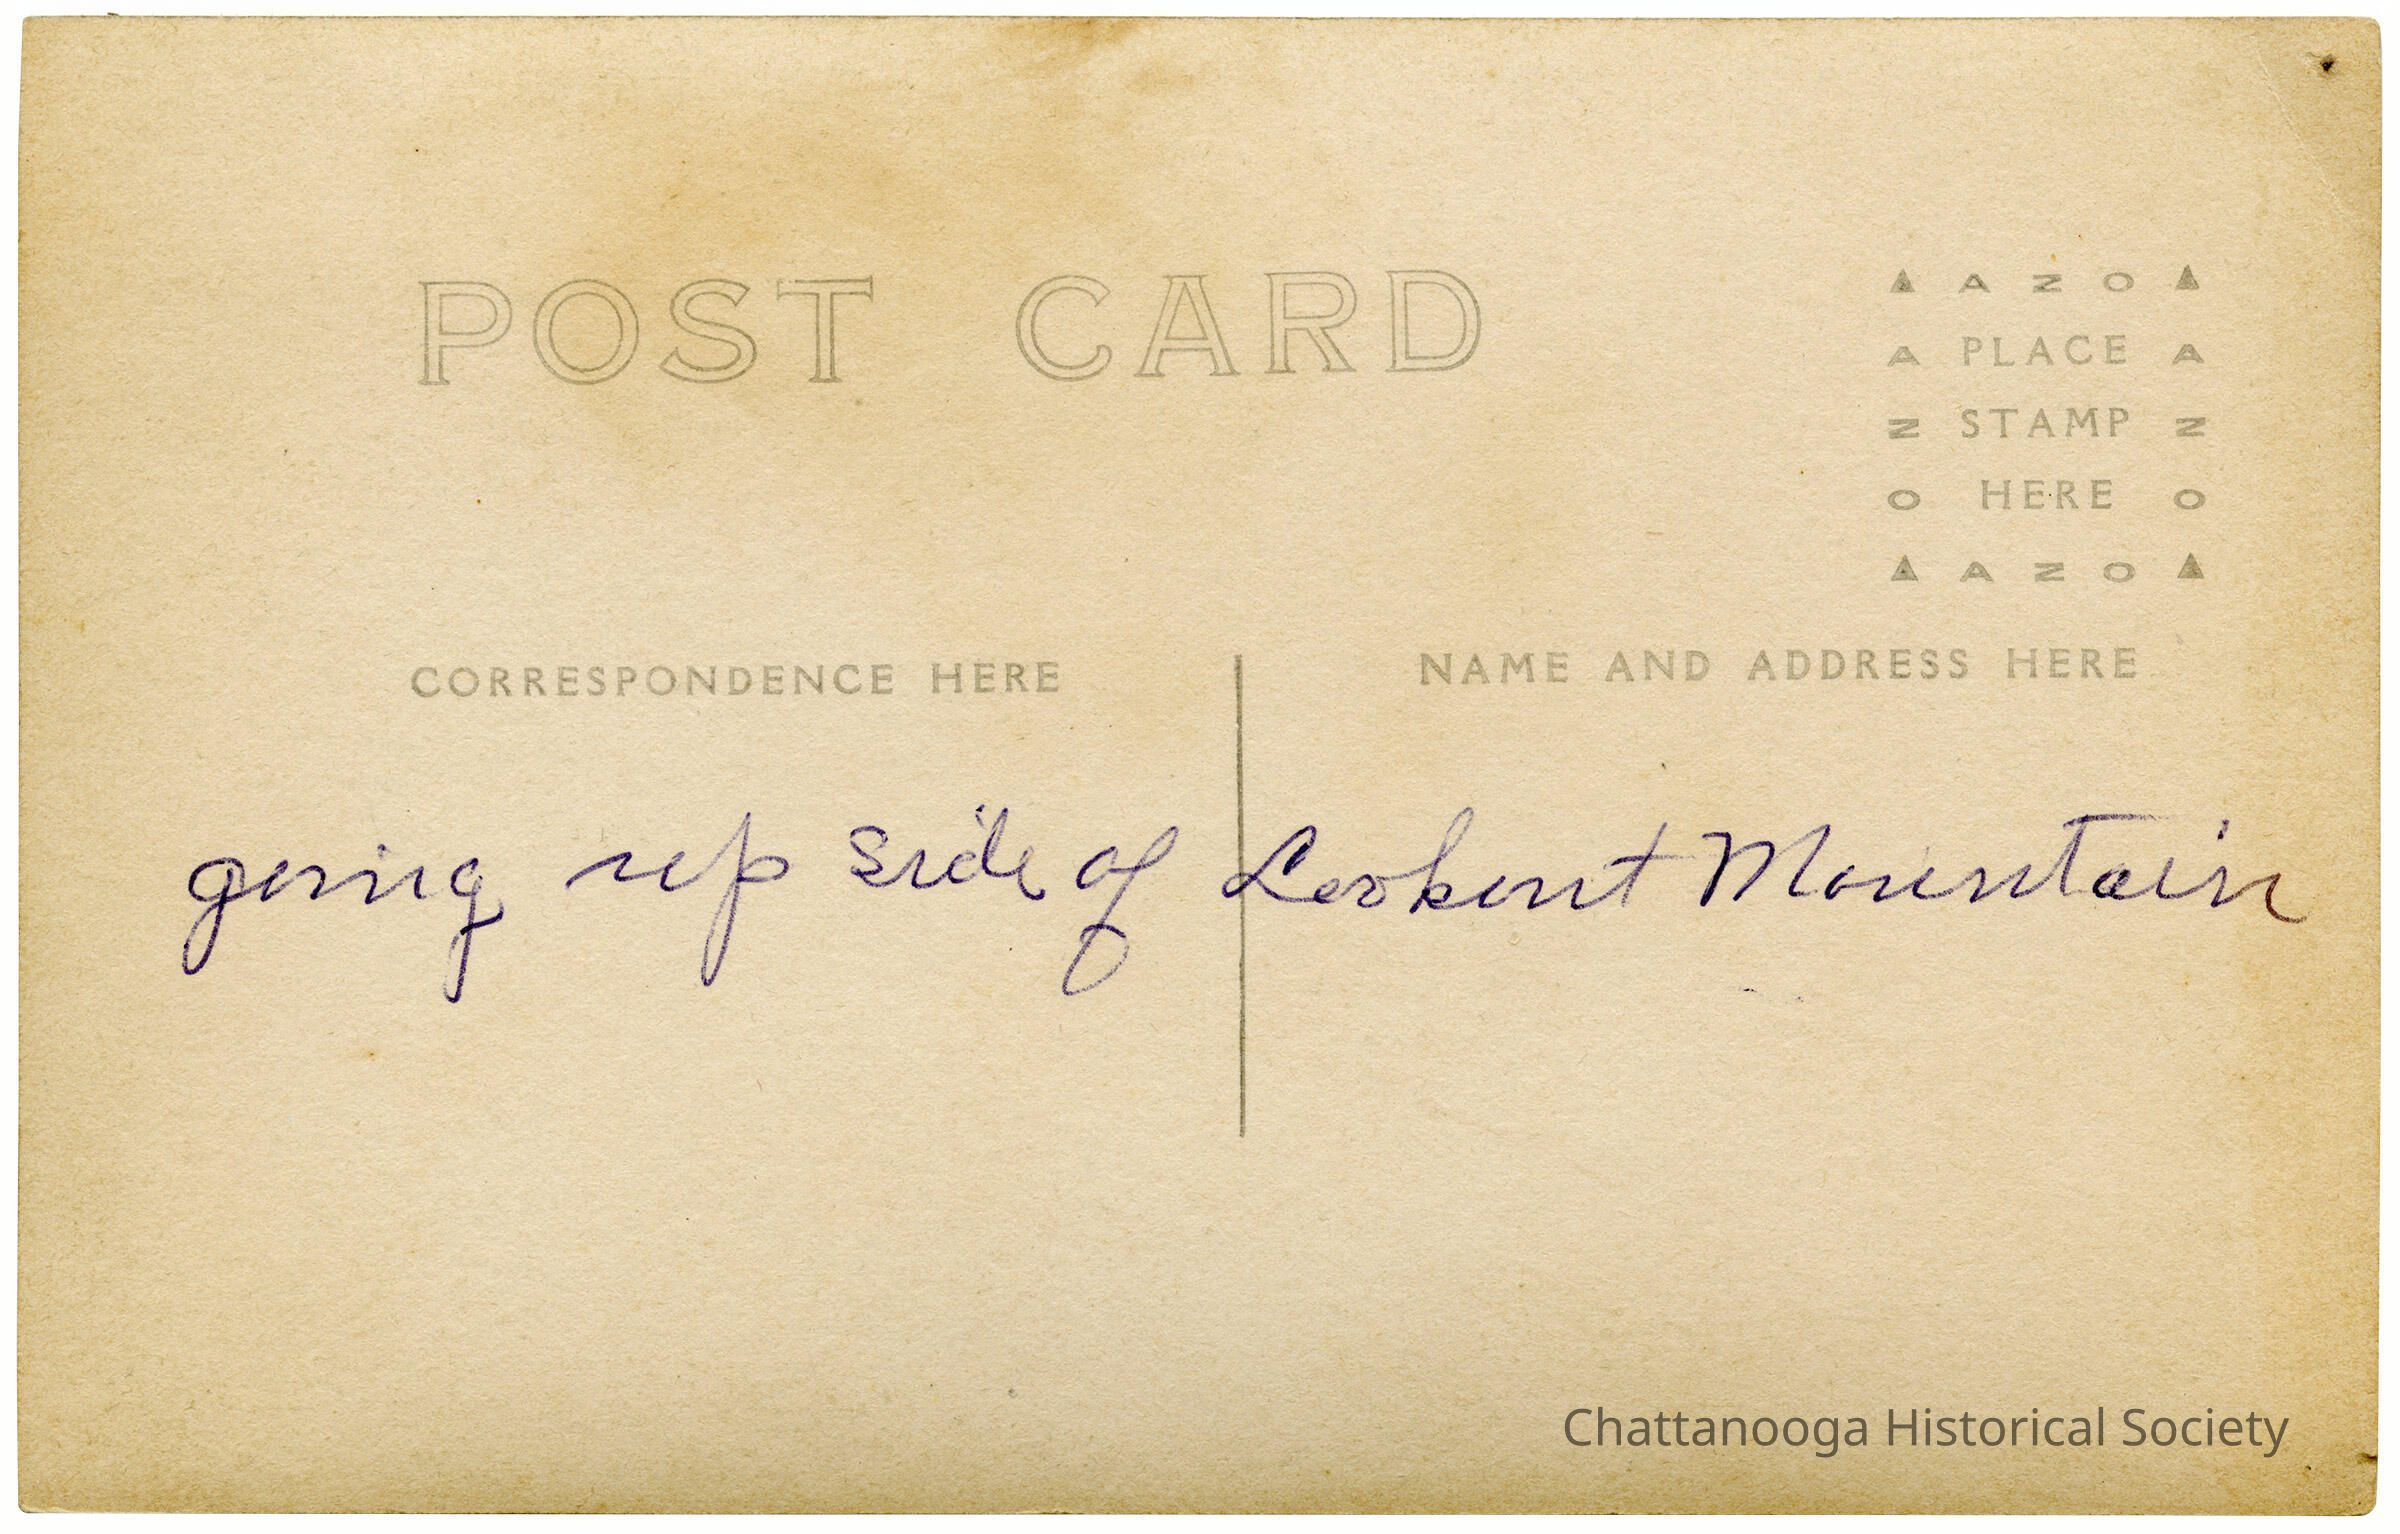 POST CARD
▲ A Z O ▲
A PLACE A
Z STAMP Z
O HERE O
▲ A Z O ▲
CORRESPONDENCE HERE
NAME AND ADDRESS HERE
going up side of Lookout Mountain
Chattanooga Historical Society